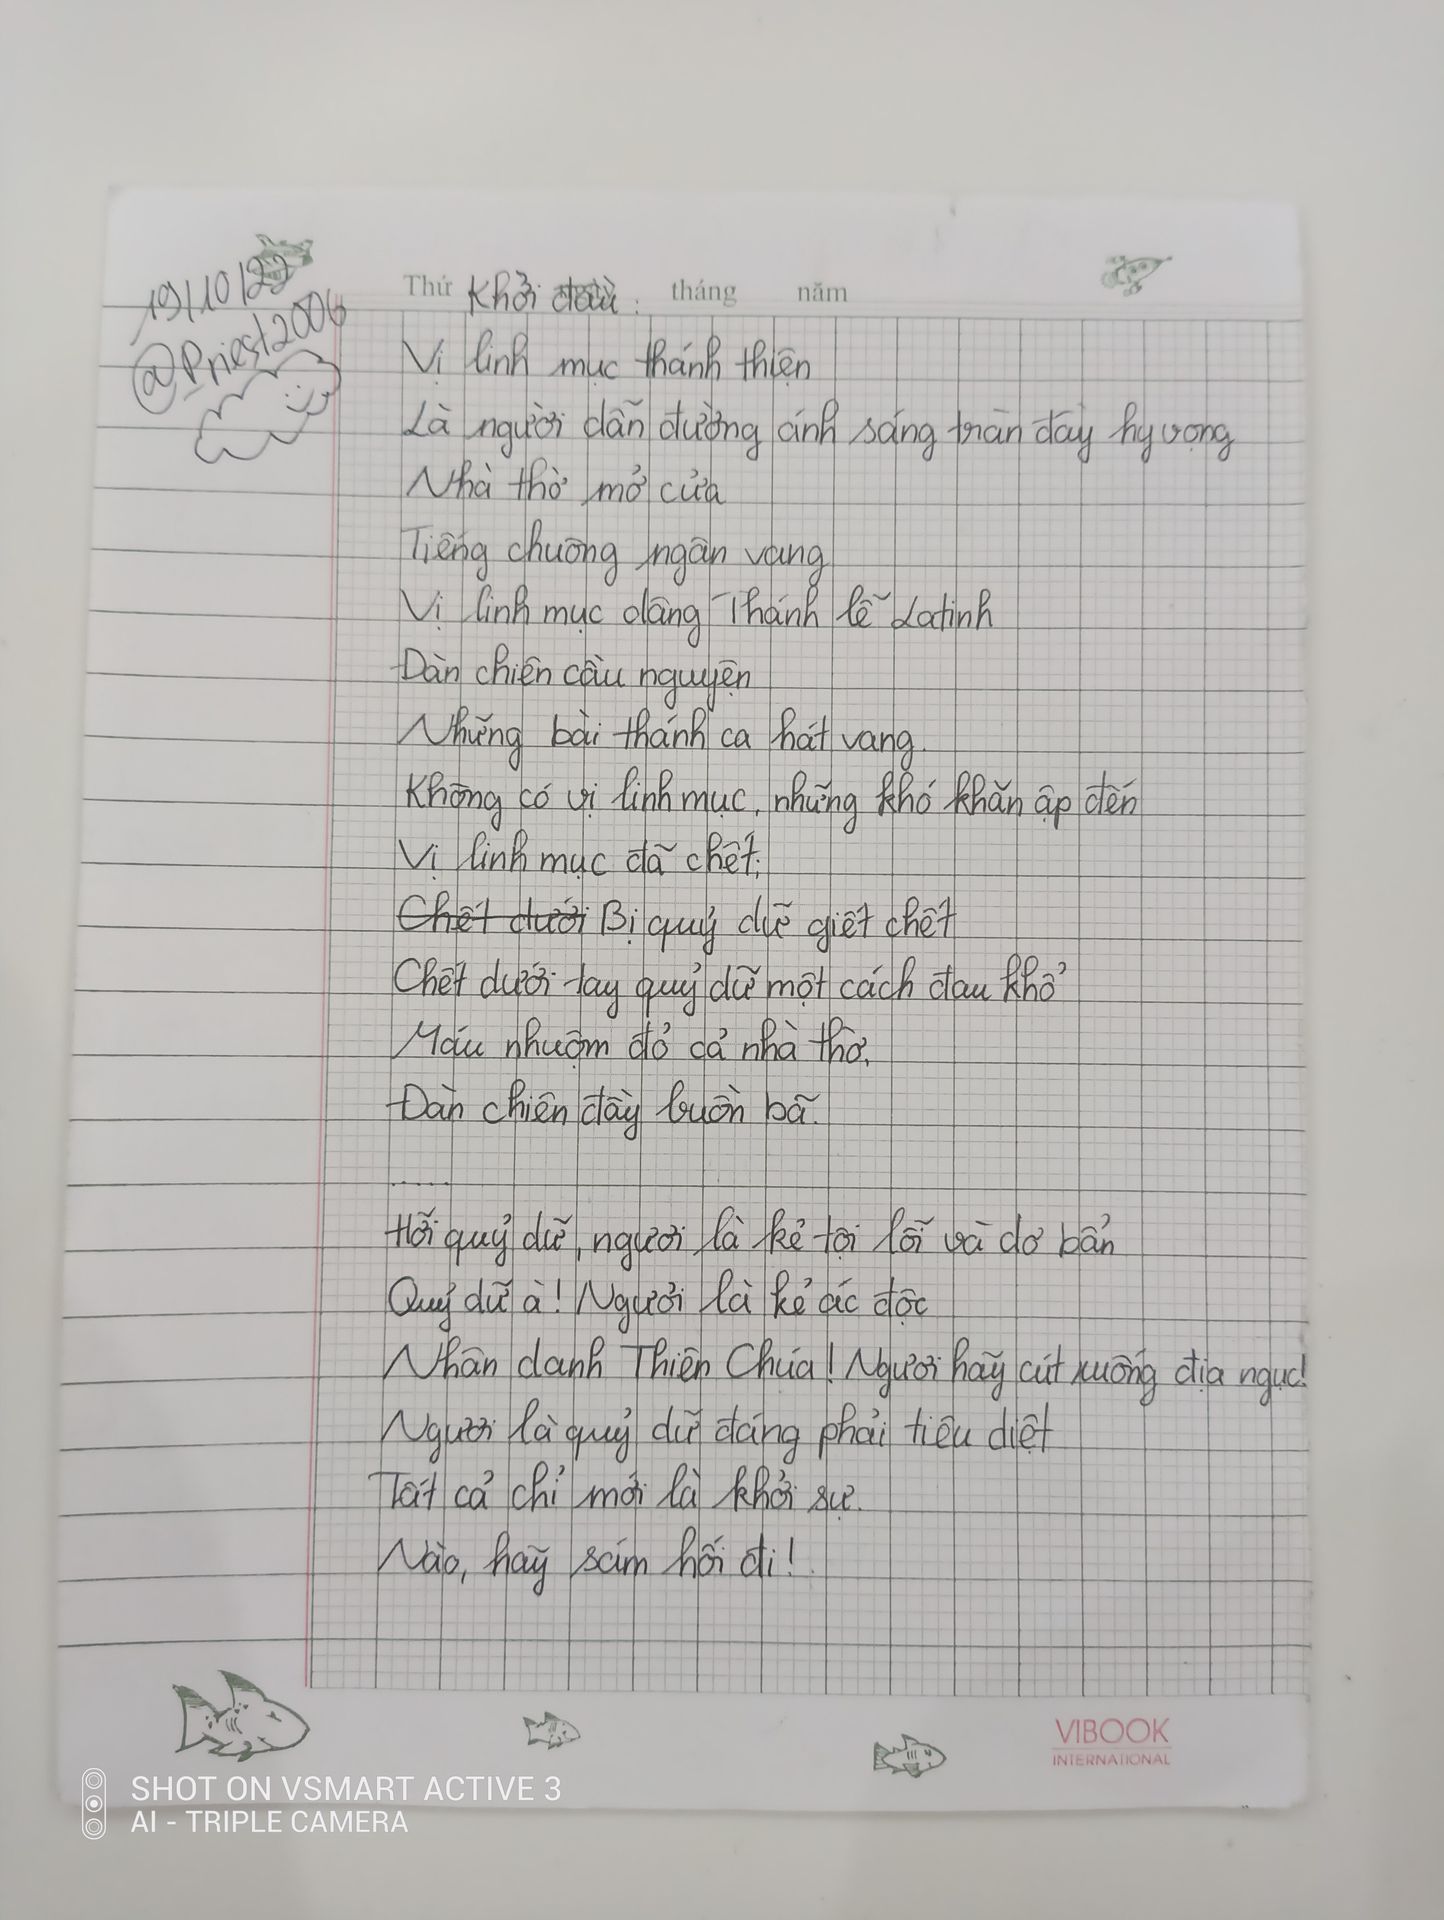 19/10/22
@Priest2006
Thứ Khởi đầu: tháng năm
Vị linh mục thánh thiện
Là người dẫn đường ánh sáng tràn đầy hy vọng
Nhà thờ mở cửa
Tiếng chuông ngân vang
Vị linh mục dâng Thánh lễ Latinh
Đàn chiên cầu nguyện
Những bài thánh ca hát vang.
Không có vị linh mục, những khó khăn ập đến
Vị linh mục đã chết.
Chết dưới Bị quỷ dữ giết chết
Chết dưới tay quỷ dữ một cách đau khổ
Máu nhuộm đỏ cả nhà thờ.
Đàn chiên đầy buồn bã.
.....
Hỡi quỷ dữ, ngươi là kẻ tội lỗi và dơ bẩn
Quỷ dữ à! Ngươi là kẻ ác độc
Nhân danh Thiên Chúa! Ngươi hãy cút xuống địa ngục!
Ngươi là quỷ dữ đáng phải tiêu diệt
Tất cả chỉ mới là khởi sự.
Nào, hãy sám hối đi!
VIBOOK
INTERNATIONAL
SHOT ON VSMART ACTIVE 3
AI - TRIPLE CAMERA